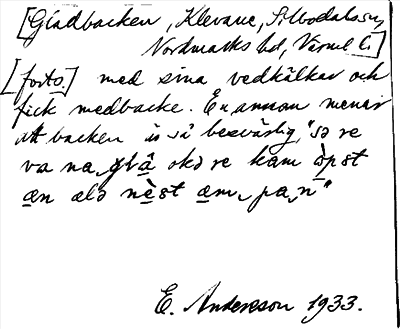 [Gladbacken, Klevane, S. Bodalssn,
Nordmarks hd, Värml. l.]
[forts.] med sina vedkälkar och
fick medbacke. En annan menar
att backen är så besvärlig, "sə re
va na glâ skə re kàm òpst
æn elə nèst æm pa n"
E. Andersson 1933.